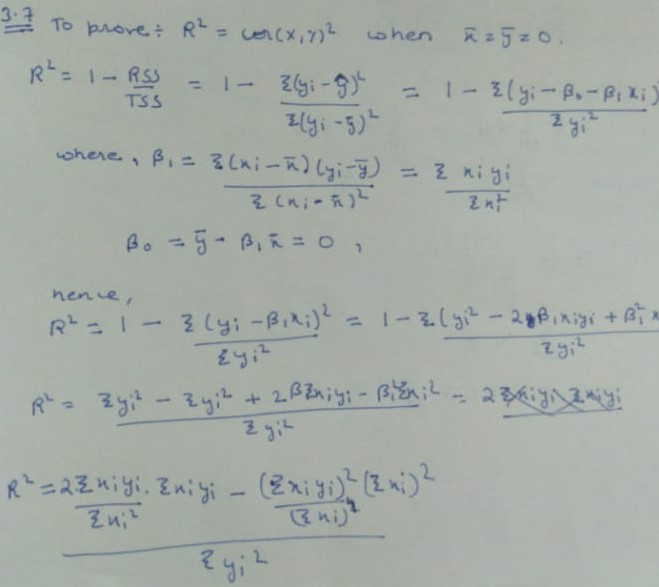 3.7 To prove ÷ R² = cor(x,y)² when x̄ = ȳ = 0.
R² = 1 - RSS/TSS = 1 - Σ(yi - ŷ)²/Σ(yi - ȳ)² = 1 - Σ(yi - β₀ - β₁xi)/Σyi²
where, β₁ = Σ(xi - x̄)(yi - ȳ)/Σ(xi - x̄)² = Σxiyi/Σxi²
β₀ = ȳ - β₁x̄ = 0,
hence,
R² = 1 - Σ(yi - β₁xi)²/Σyi² = 1 - Σ(yi² - 2β₁xiyi + β₁²x/Σyi²
R² = Σyi² - Σyi² + 2βΣxiyi - β₁²Σxi²/Σyi² = 2Σxiyi Σxiyi
R² = 2Σxiyi/Σxi² . Σxiyi - (Σxiyi)²/(Σxi)² (Σxi)²
Σyi²